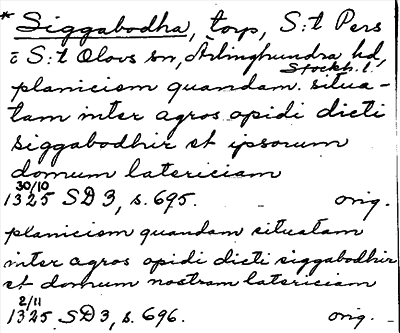 * Siggabodha, torp, S:t Pers
o S:t Olovs sn, Ärlinghundra hd,
Stockh. l.
planiciem quandam situa-
tam inter agros opidi dicti
siggabodhir et ipsorum
domum latericiam
30/10
1325 SD 3, s. 695. orig.
planiciem quandam situatam
inter agros opidi dicti siggabodhir
et domum nostram latericiam
2/11
1325 SD 3, s. 696. orig.